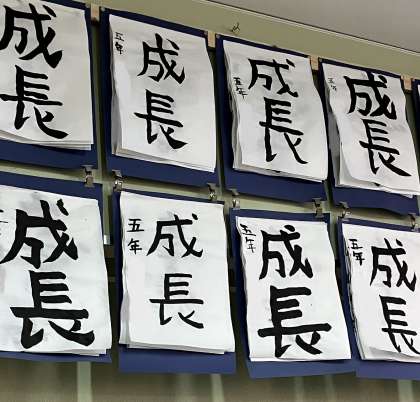 成長
五年 成長
五年 成長
五年 成長
成長
五年 成長
五年 成長
五年 成長